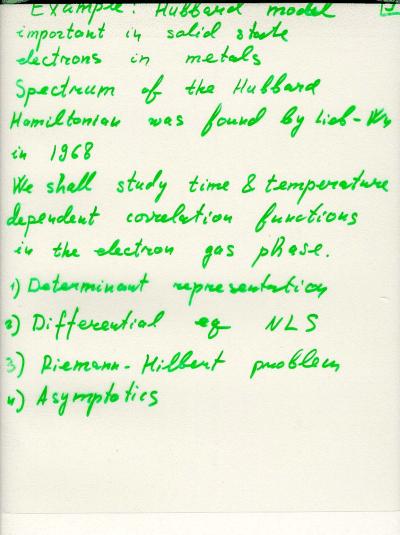 Example: Hubbard model
important in solid state
electrons in metals
Spectrum of the Hubbard
Hamiltonian was found by Lieb-Wu
in 1968
We shall study time & temperature
dependent correlation functions
in the electron gas phase.
1) Determinant representation
2) Differential eq NLS
3) Riemann-Hilbert problem
4) Asymptotics